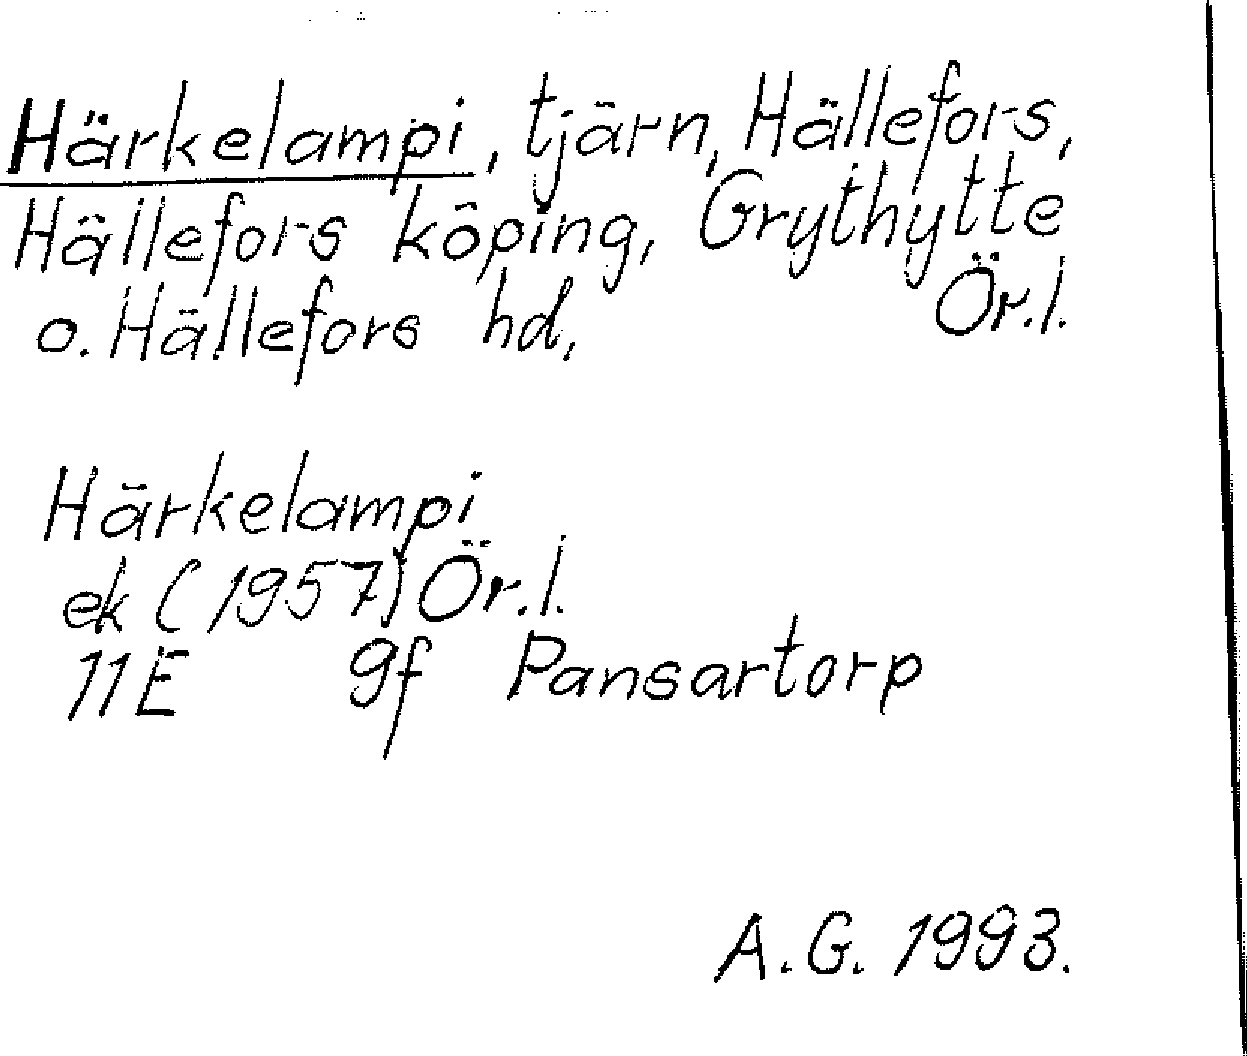 Härkelampi, tjärn, Hällefors,
Hällefors köping, Grythytte
o. Hällefors hd, Ör.l.
Härkelampi
ek (1957) Ör.l.
11E 9f Pansartorp
A.G. 1993.